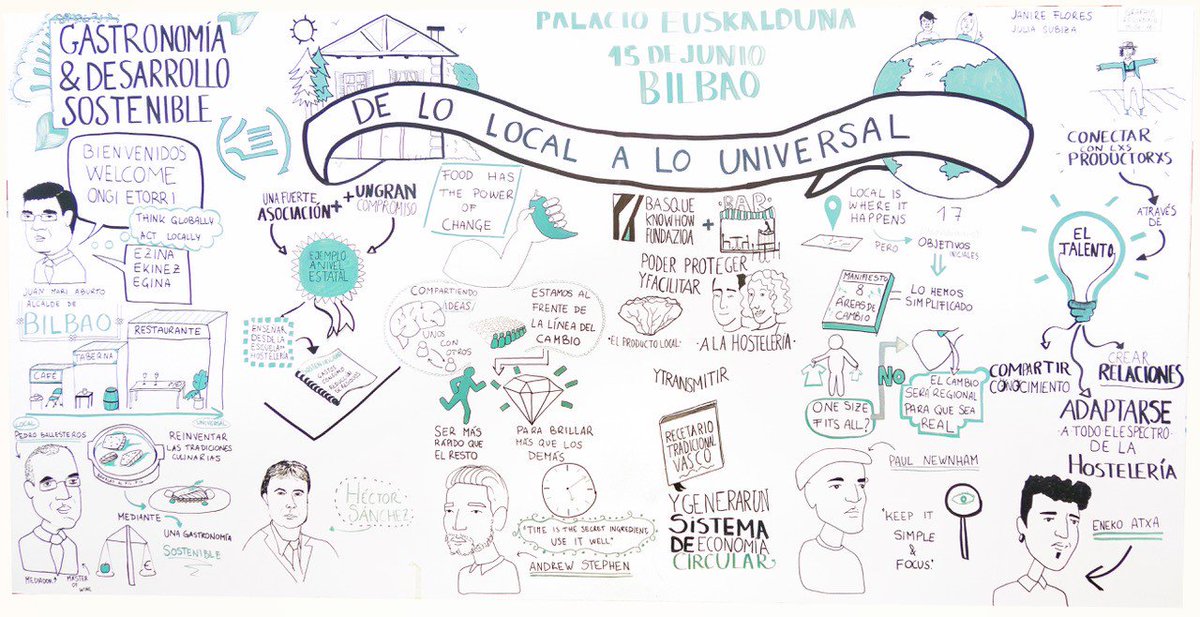 GASTRONOMÍA
& DESARROLLO
SOSTENIBLE
PALACIO EUSKALDUNA
15 DE JUNIO
BILBAO
JANIRE FLORES
JULIA SUBIZA
DE LO LOCAL A LO UNIVERSAL
BIENVENIDOS
WELCOME
ONGI ETORRI
THINK GLOBALLY
ACT LOCALLY
EZINA
EKINEZ
EGINA
JUAN MARI ABURTO
ALCALDE DE
BILBAO
RESTAURANTE
TABERNA
CAFÉ
LOCAL
UNIVERSAL
PEDRO BALLESTEROS
REINVENTAR
LAS TRADICIONES
CULINARIAS
MEDIANTE
UNA GASTRONOMÍA
SOSTENIBLE
MASTER
OF
WINE
UNA FUERTE
ASOCIACIÓN
+
UN GRAN
COMPROMISO
EJEMPLO
A NIVEL
ESTATAL
ENSEÑAR
DESDE LA
ESCUELA DE
HOSTELERÍA
HÉCTOR
SÁNCHEZ
FOOD HAS
THE POWER
OF
CHANGE
COMPARTIENDO
IDEAS
UNOS
CON
OTROS
ESTAMOS AL
FRENTE DE
LA LÍNEA DEL
CAMBIO
SER MÁS
RÁPIDO QUE
EL RESTO
PARA BRILLAR
MÁS QUE LOS
DEMÁS
"TIME IS THE SECRET INGREDIENT,
USE IT WELL"
ANDREW STEPHEN
BASQUE
KNOW HOW
FUNDAZIOA
+
B.A.P.
PODER PROTEGER
Y FACILITAR
·EL PRODUCTO LOCAL·
·A LA HOSTELERÍA·
Y TRANSMITIR
RECETARIO
TRADICIONAL
VASCO
Y GENERAR UN
SISTEMA
DE ECONOMÍA
CIRCULAR
LOCAL IS
WHERE IT
HAPPENS
PERO
17
OBJETIVOS
INICIALES
MANIFIESTO
8
ÁREAS DE
CAMBIO
LO HEMOS
SIMPLIFICADO
ONE SIZE
FITS ALL?
NO
EL CAMBIO
SERÁ REGIONAL
PARA QUE SEA
REAL
PAUL NEWNHAM
"KEEP IT
SIMPLE
&
FOCUS."
CONECTAR
CON LXS
PRODUCTORXS
A TRAVÉS
DE
EL
TALENTO
COMPARTIR
CONOCIMIENTO
CREAR
RELACIONES
ADAPTARSE
A TODO EL ESPECTRO
DE LA
HOSTELERÍA
ENEKO ATXA